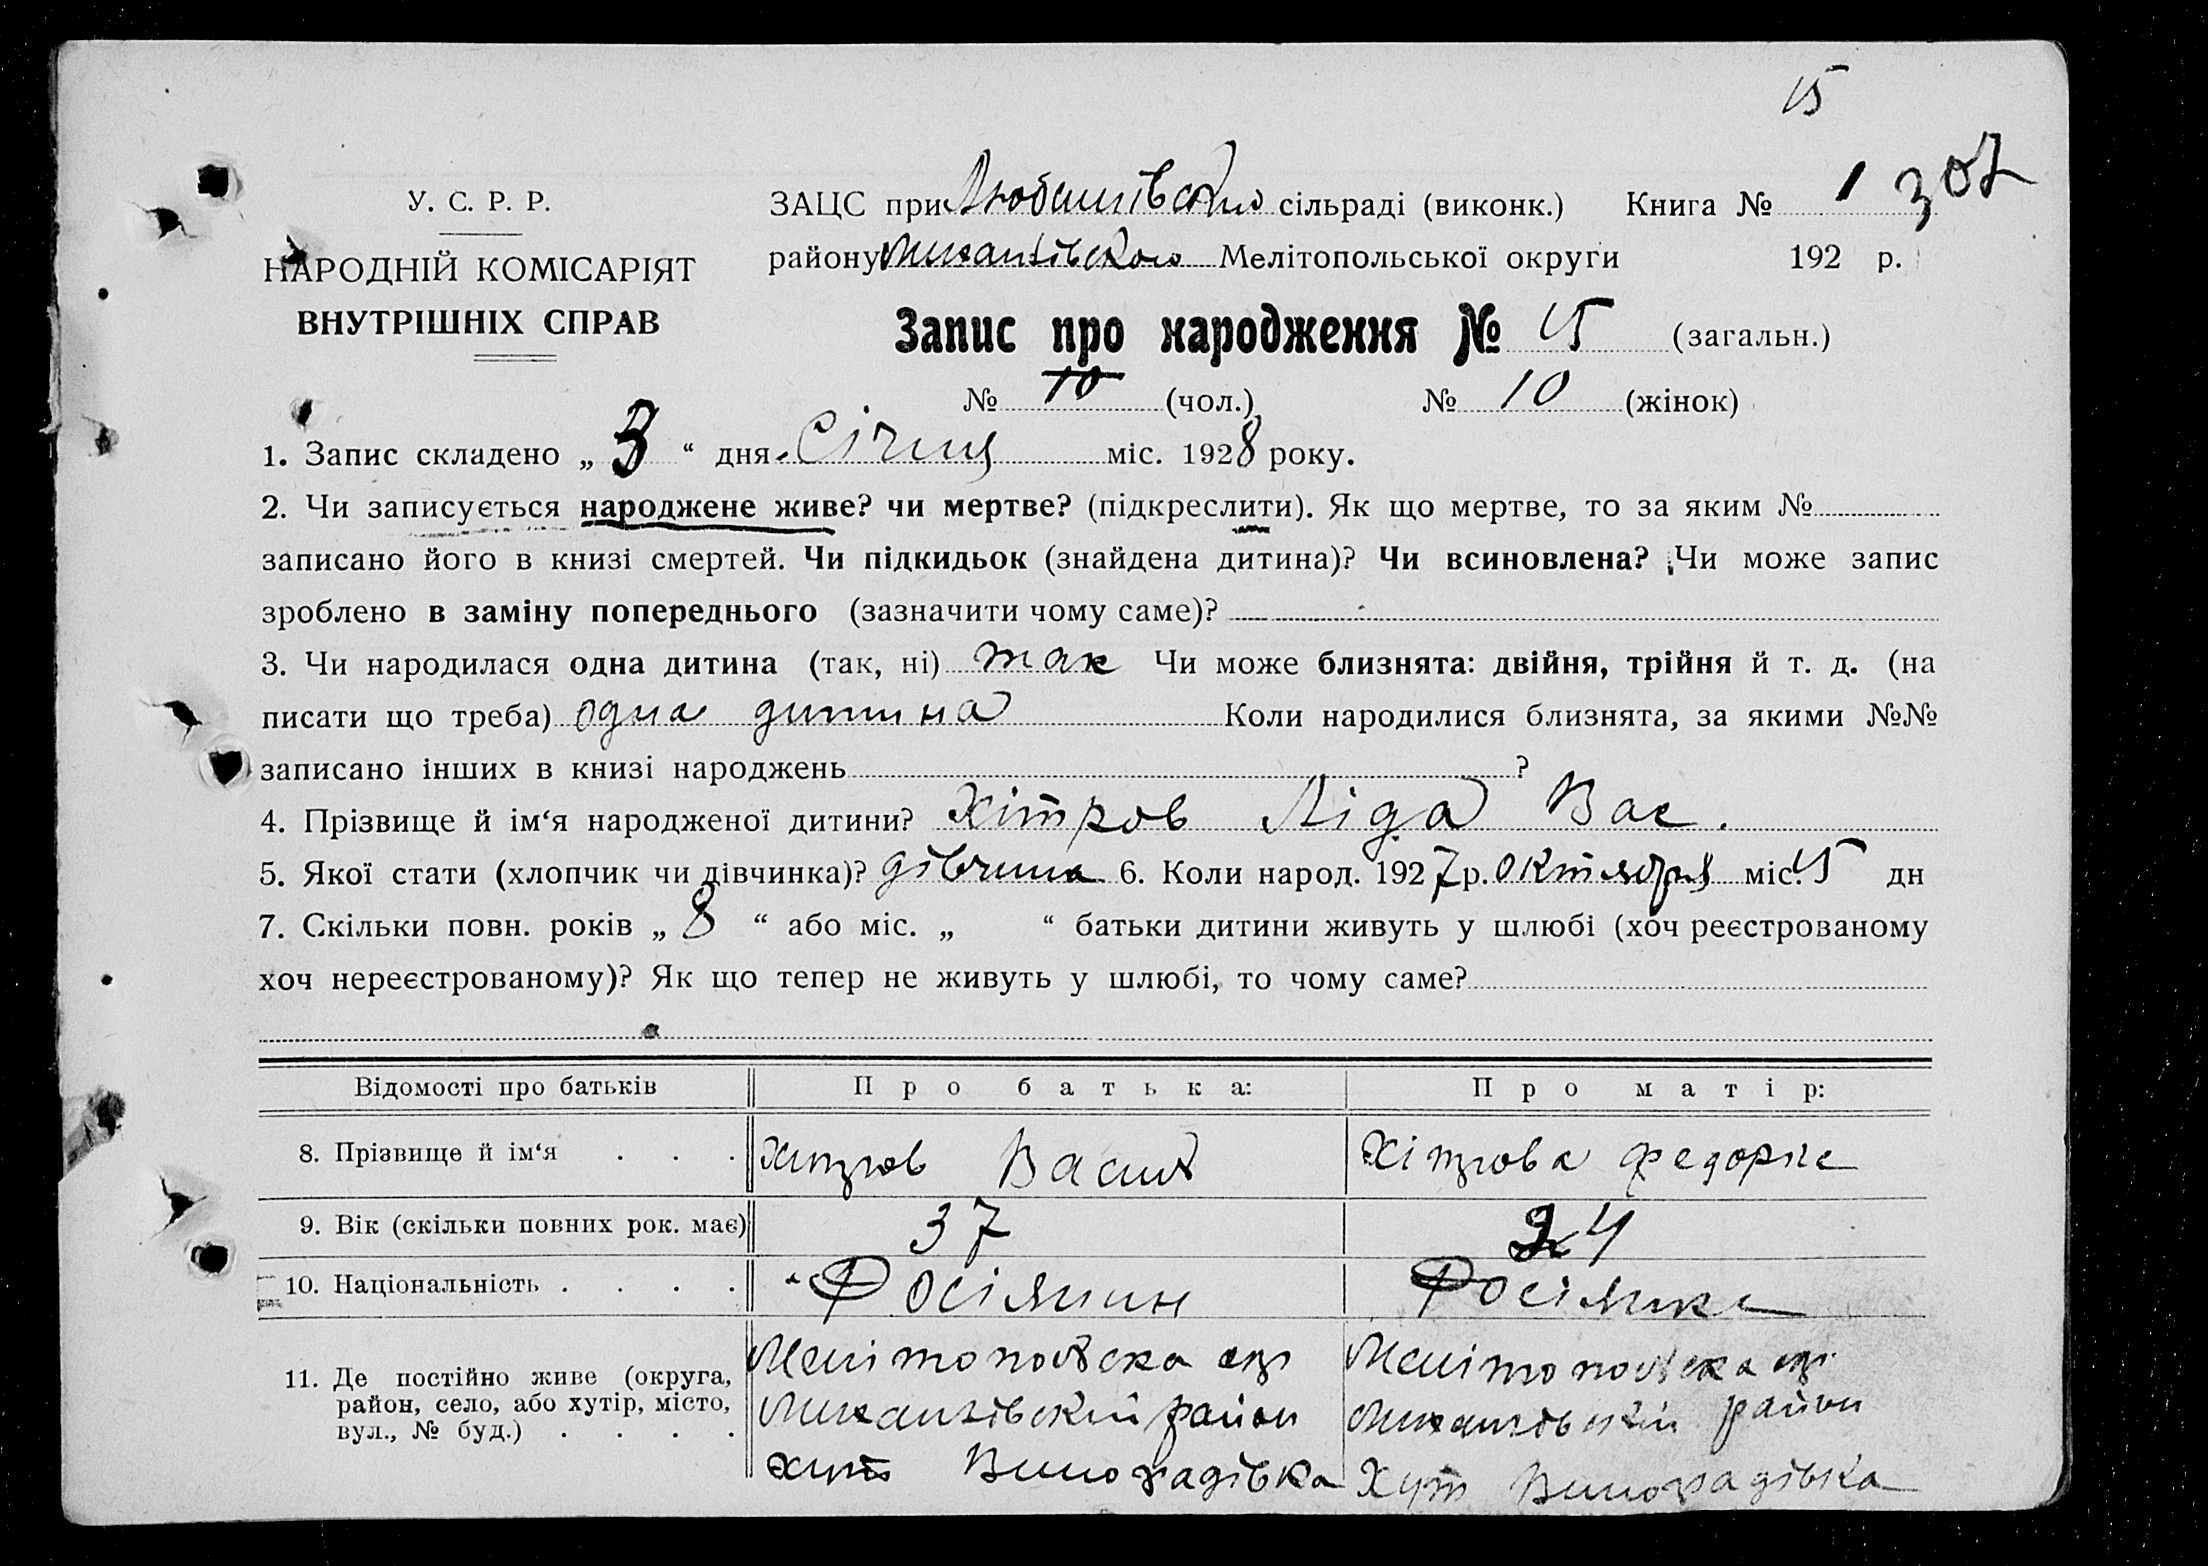 15
У. С. Р. Р.
НАРОДНІЙ КОМІСАРІЯТ
ВНУТРІШНІХ СПРАВ
ЗАЦС при сільраді (виконк.) Книга № 1 307
району Михайлівсткого Мелітопольської округи 192 р.
Запис про народження № 15 (загальн.)
№ 10 (чол.) № 10 (жінок)
1. Запис складено „ 3 “ дня Січня міс. 1928 року.
2. Чи записується народжене живе? чи мертве? (підкреслити). Як що мертве, то за яким №
записано його в книзі смертей. Чи підкидьок (знайдена дитина)? Чи всиновлена? Чи може запис
зроблено в заміну попереднього (зазначити чому саме)?
3. Чи народилася одна дитина (так, ні) так Чи може близнята: двійня, трійня й т. д. (на
писати що треба) одна дитина Коли народилися близнята, за якими №№
записано інших в книзі народжень ?
4. Прізвище й ім‘я народженої дитини? Хітров Ліда Вас.
5. Якої стати (хлопчик чи дівчинка)? дівчина 6. Коли народ. 1927 р. октября міс. 15 дн
7. Скільки повн. років „ 8 “ або міс. „ “ батьки дитини живуть у шлюбі (хоч реєстрованому
хоч нереєстрованому)? Як що тепер не живуть у шлюбі, то чому саме?
Відомості про батьків Про батька: Про матір:
8. Прізвище й ім‘я . . . Хитров Васил Хітрова Федорка
9. Вік (скільки повних рок. має) 37 24
10. Національність . . . . Росіянин Росіянка
11. Де постійно живе (округа, район, село, або хутір, місто, вул., № буд.) . . . .
Мелітопольска окр Мелітопольска окр
Михайлівский район Михайлівский район
хут Виноградівка Хут Виноградівка